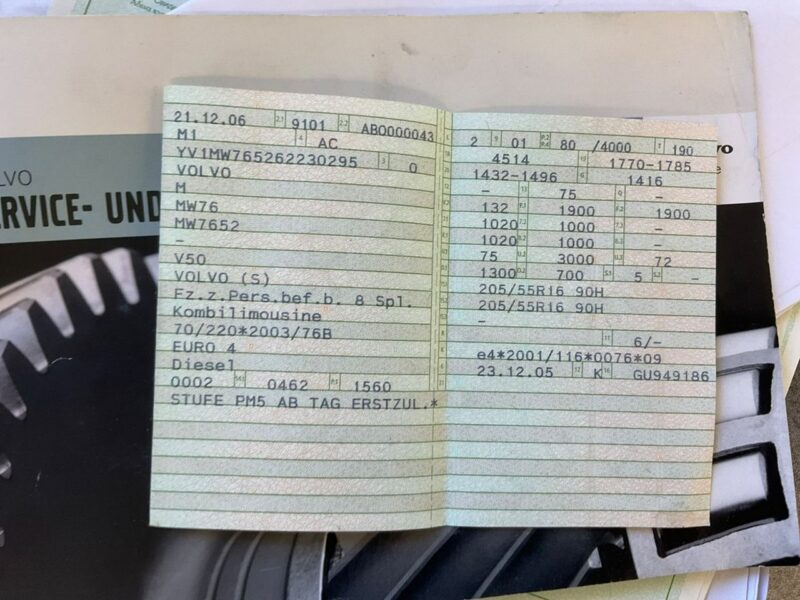 21.12.06 2.1 9101 2.2 ABO000043
M1 4 AC
YV1MW765262230295 3 0
VOLVO
M
MW76
MW7652
-
V50
VOLVO (S)
Fz.z.Pers.bef.b. 8 Spl.
Kombilimousine
70/220*2003/76B
EURO 4
Diesel
0002 0462 P.3 1560
STUFE PM5 AB TAG ERSTZUL.*
2 9 01 P.2 P.4 80 /4000 T 190
4514 1770-1785
1432-1496 G 1416
- 13 75 Q -
132 F.1 1900 F.2 1900
1020 7.2 1000 -
1020 8.2 1000 -
75 U.2 3000 U.3 72
1300 700 S.1 5 S.2 -
205/55R16 90H
205/55R16 90H
-
11 6/-
e4*2001/116*0076*09
23.12.05 K 16 GU949186
LVO
ERVICE- UND